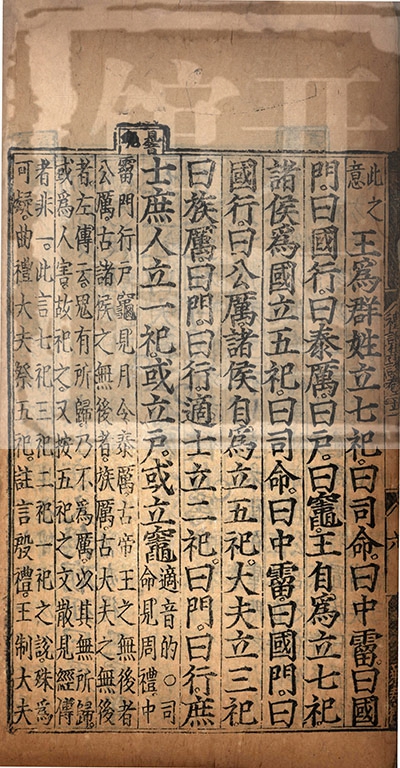 此之
意
王爲群姓立七祀。曰司命。曰中霤。曰國
門。曰國行。曰泰厲。曰戶。曰竈。王自爲立七祀
諸侯爲國立五祀。曰司命。曰中霤。曰國門。曰
國行。曰公厲。諸侯自爲立五祀。大夫立三祀
曰族厲。曰門。曰行。適士立二祀。曰門。曰行。庶
士庶人立一祀。或立戶。或立竈
適音的。○司
命見周禮。中
霤門行戶竈見月令。泰厲古帝王之無後者
公厲古諸侯之無後者。族厲古大夫之無後
者。左傳云鬼有所歸乃不爲厲。以其無所歸。
或爲人害。故祀之。又按五祀之文散見經傳
者非一。此言七祀三祀二祀一祀之說。殊爲
可疑。曲禮大夫祭五祀。註言殷禮。王制大夫
六